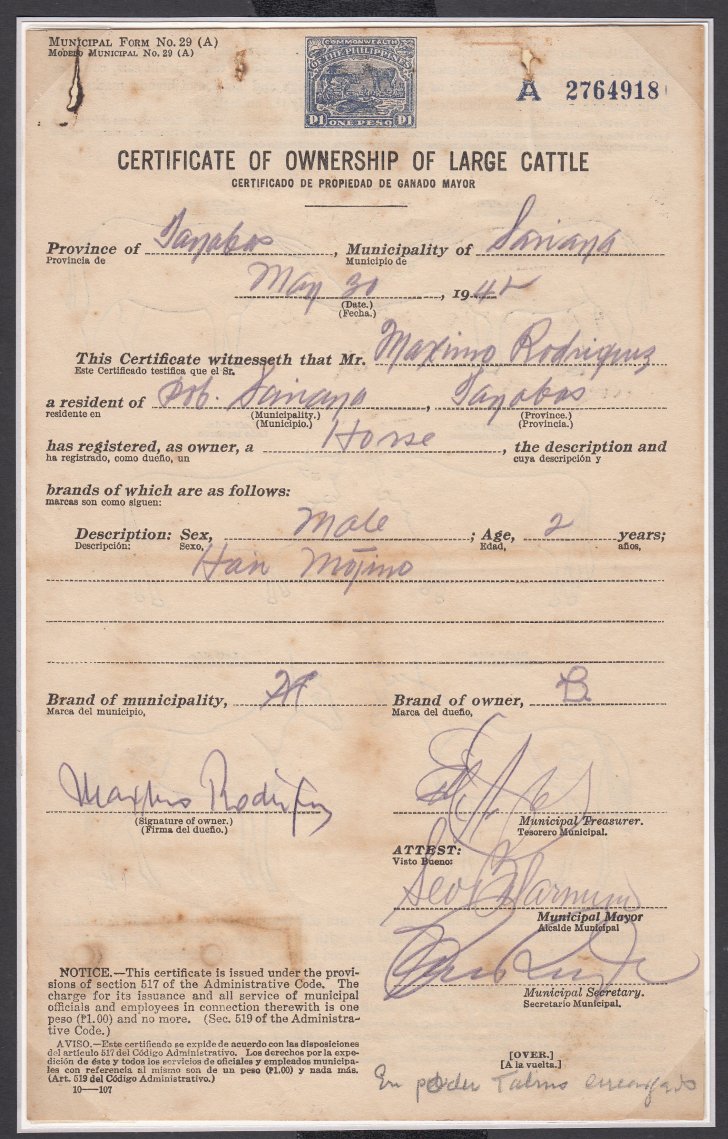 MUNICIPAL FORM NO. 29 (A)
MODELO MUNICIPAL NO. 29 (A)
COMMONWEALTH
OF THE PHILIPPINES
₱1 ONE PESO ₱1
A 2764918
CERTIFICATE OF OWNERSHIP OF LARGE CATTLE
CERTIFICADO DE PROPIEDAD DE GANADO MAYOR
Province of Tayabas, Municipality of Sariaya
Provincia de Municipio de
May 30, 1945
(Date.)
(Fecha.)
This Certificate witnesseth that Mr. Maximo Rodriguez
Este Certificado testifica que el Sr.
a resident of Pob. Sariaya, Tayabas
residente en (Municipality.) (Province.)
(Municipio.) (Provincia.)
has registered, as owner, a Horse, the description and
ha registrado, como dueño, un cuya descripción y
brands of which are as follows:
marcas son como siguen:
Description: Sex, Male; Age, 2 years;
Descripción: Sexo, Edad, años,
Hair Mojino
Brand of municipality, Brand of owner, B
Marca del municipio, Marca del dueño,
Maximo Rodriguez
(Signature of owner.)
(Firma del dueño.)
Municipal Treasurer.
Tesorero Municipal.
ATTEST:
Visto Bueno:
Municipal Mayor
Alcalde Municipal
Municipal Secretary.
Secretario Municipal.
NOTICE.—This certificate is issued under the provi-
sions of section 517 of the Administrative Code. The
charge for its issuance and all service of municipal
officials and employees in connection therewith is one
peso (₱1.00) and no more. (Sec. 519 of the Administra-
tive Code.)
AVISO.—Este certificado se expide de acuerdo con las disposiciones
del artículo 517 del Código Administrativo. Los derechos por la expe-
dición de éste y todos los servicios de oficiales y empleados municipa-
les con referencia al mismo son de un peso (₱1.00) y nada más.
(Art. 519 del Código Administrativo.)
10——107
[OVER.]
[A la vuelta.]
En poder encargado